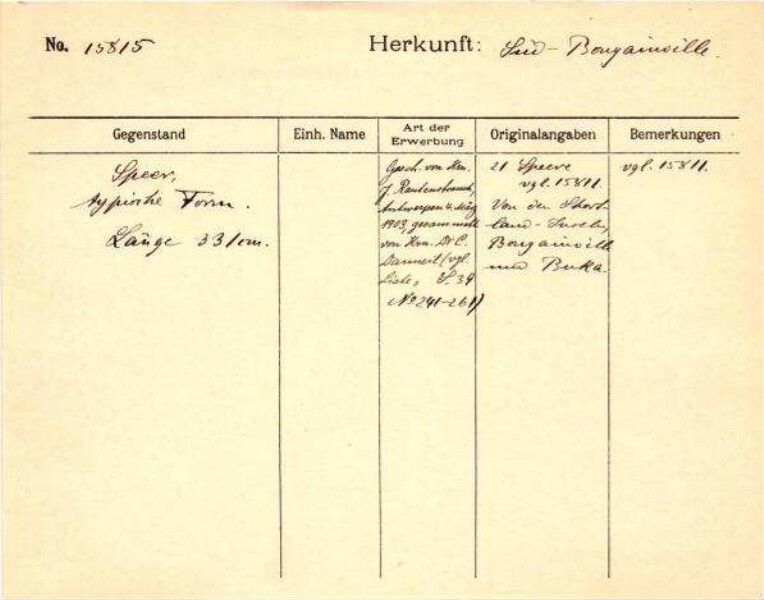 No. 15815 Herkunft: Süd-Bougainville.
Gegenstand Einh. Name Art der Erwerbung Originalangaben Bemerkungen
Speer,
typische Form.
Länge 331 cm.
Gesch. von Hrn.
J. Rautenstrauch,
Antwerpen 4. März
1903, gesammelt
von Hrn. Dr C.
Dannert (vgl.
Liste, S. 39
No 241-261)
21 Speere
vgl. 15811.
Von den Short-
land-Inseln,
Bougainville
und Buka.
vgl. 15811.